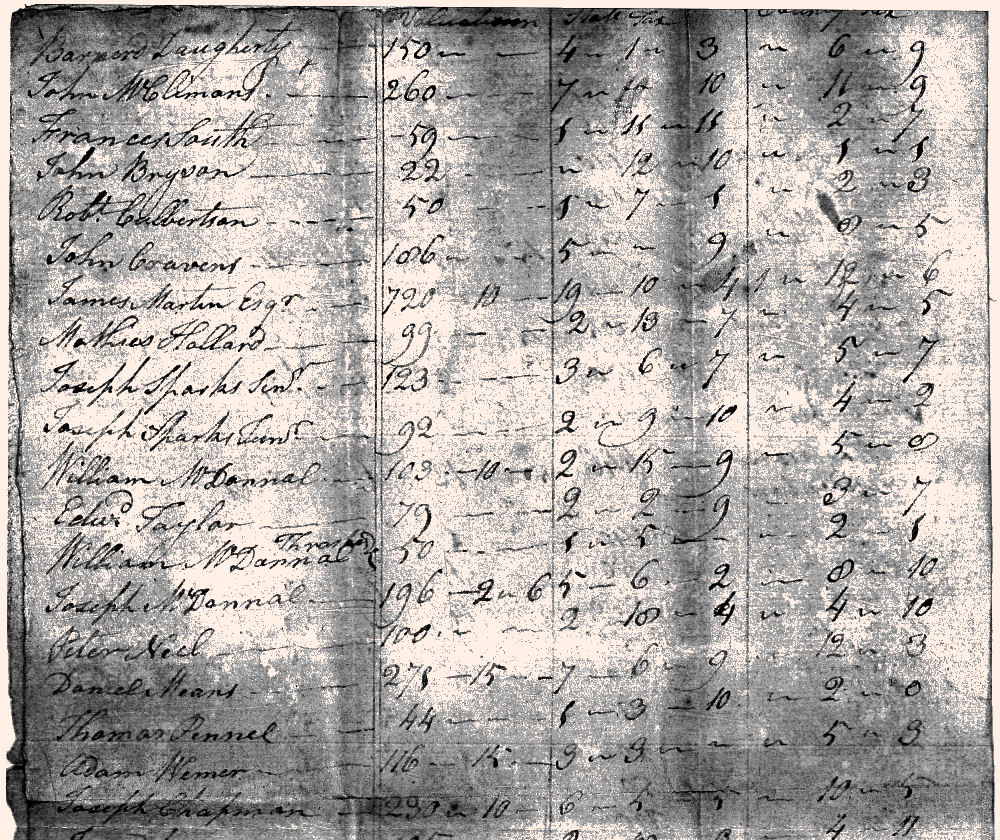 Valuation State Tax County Tax
Barnerd Daugherty 150 4 1 3 6 9
John McClimans 260 7 10 11 9
Frances South 59 1 11 11 2 7
John Bryson 22 12 10 1 1
Robt. Culbertson 50 1 7 1 2 3
John Cravens 186 5 9 8 5
James Martin Esqr 720 10 19 10 4 1 12 6
Mathias Hollard 99 2 13 7 4 5
Joseph Sparks Senr. 123 3 6 7 5 7
Joseph Sparks Junr 92 2 9 10 4 2
William McDannal 103 10 2 15 9 5 8
Edwd Taylor 79 2 2 9 3 7
William McDannal 50 1 5 2 1
Joseph McDannal 196 2 6 5 6 2 8 10
Peter Neel 100 2 18 4 4 10
Daniel Means 271 15 7 6 9 12 3
Thomas Pennel 44 1 3 10 2 0
Adam Wemer 116 15 3 3 5 3
Joseph Chapman 230 10 6 5 5 10 5